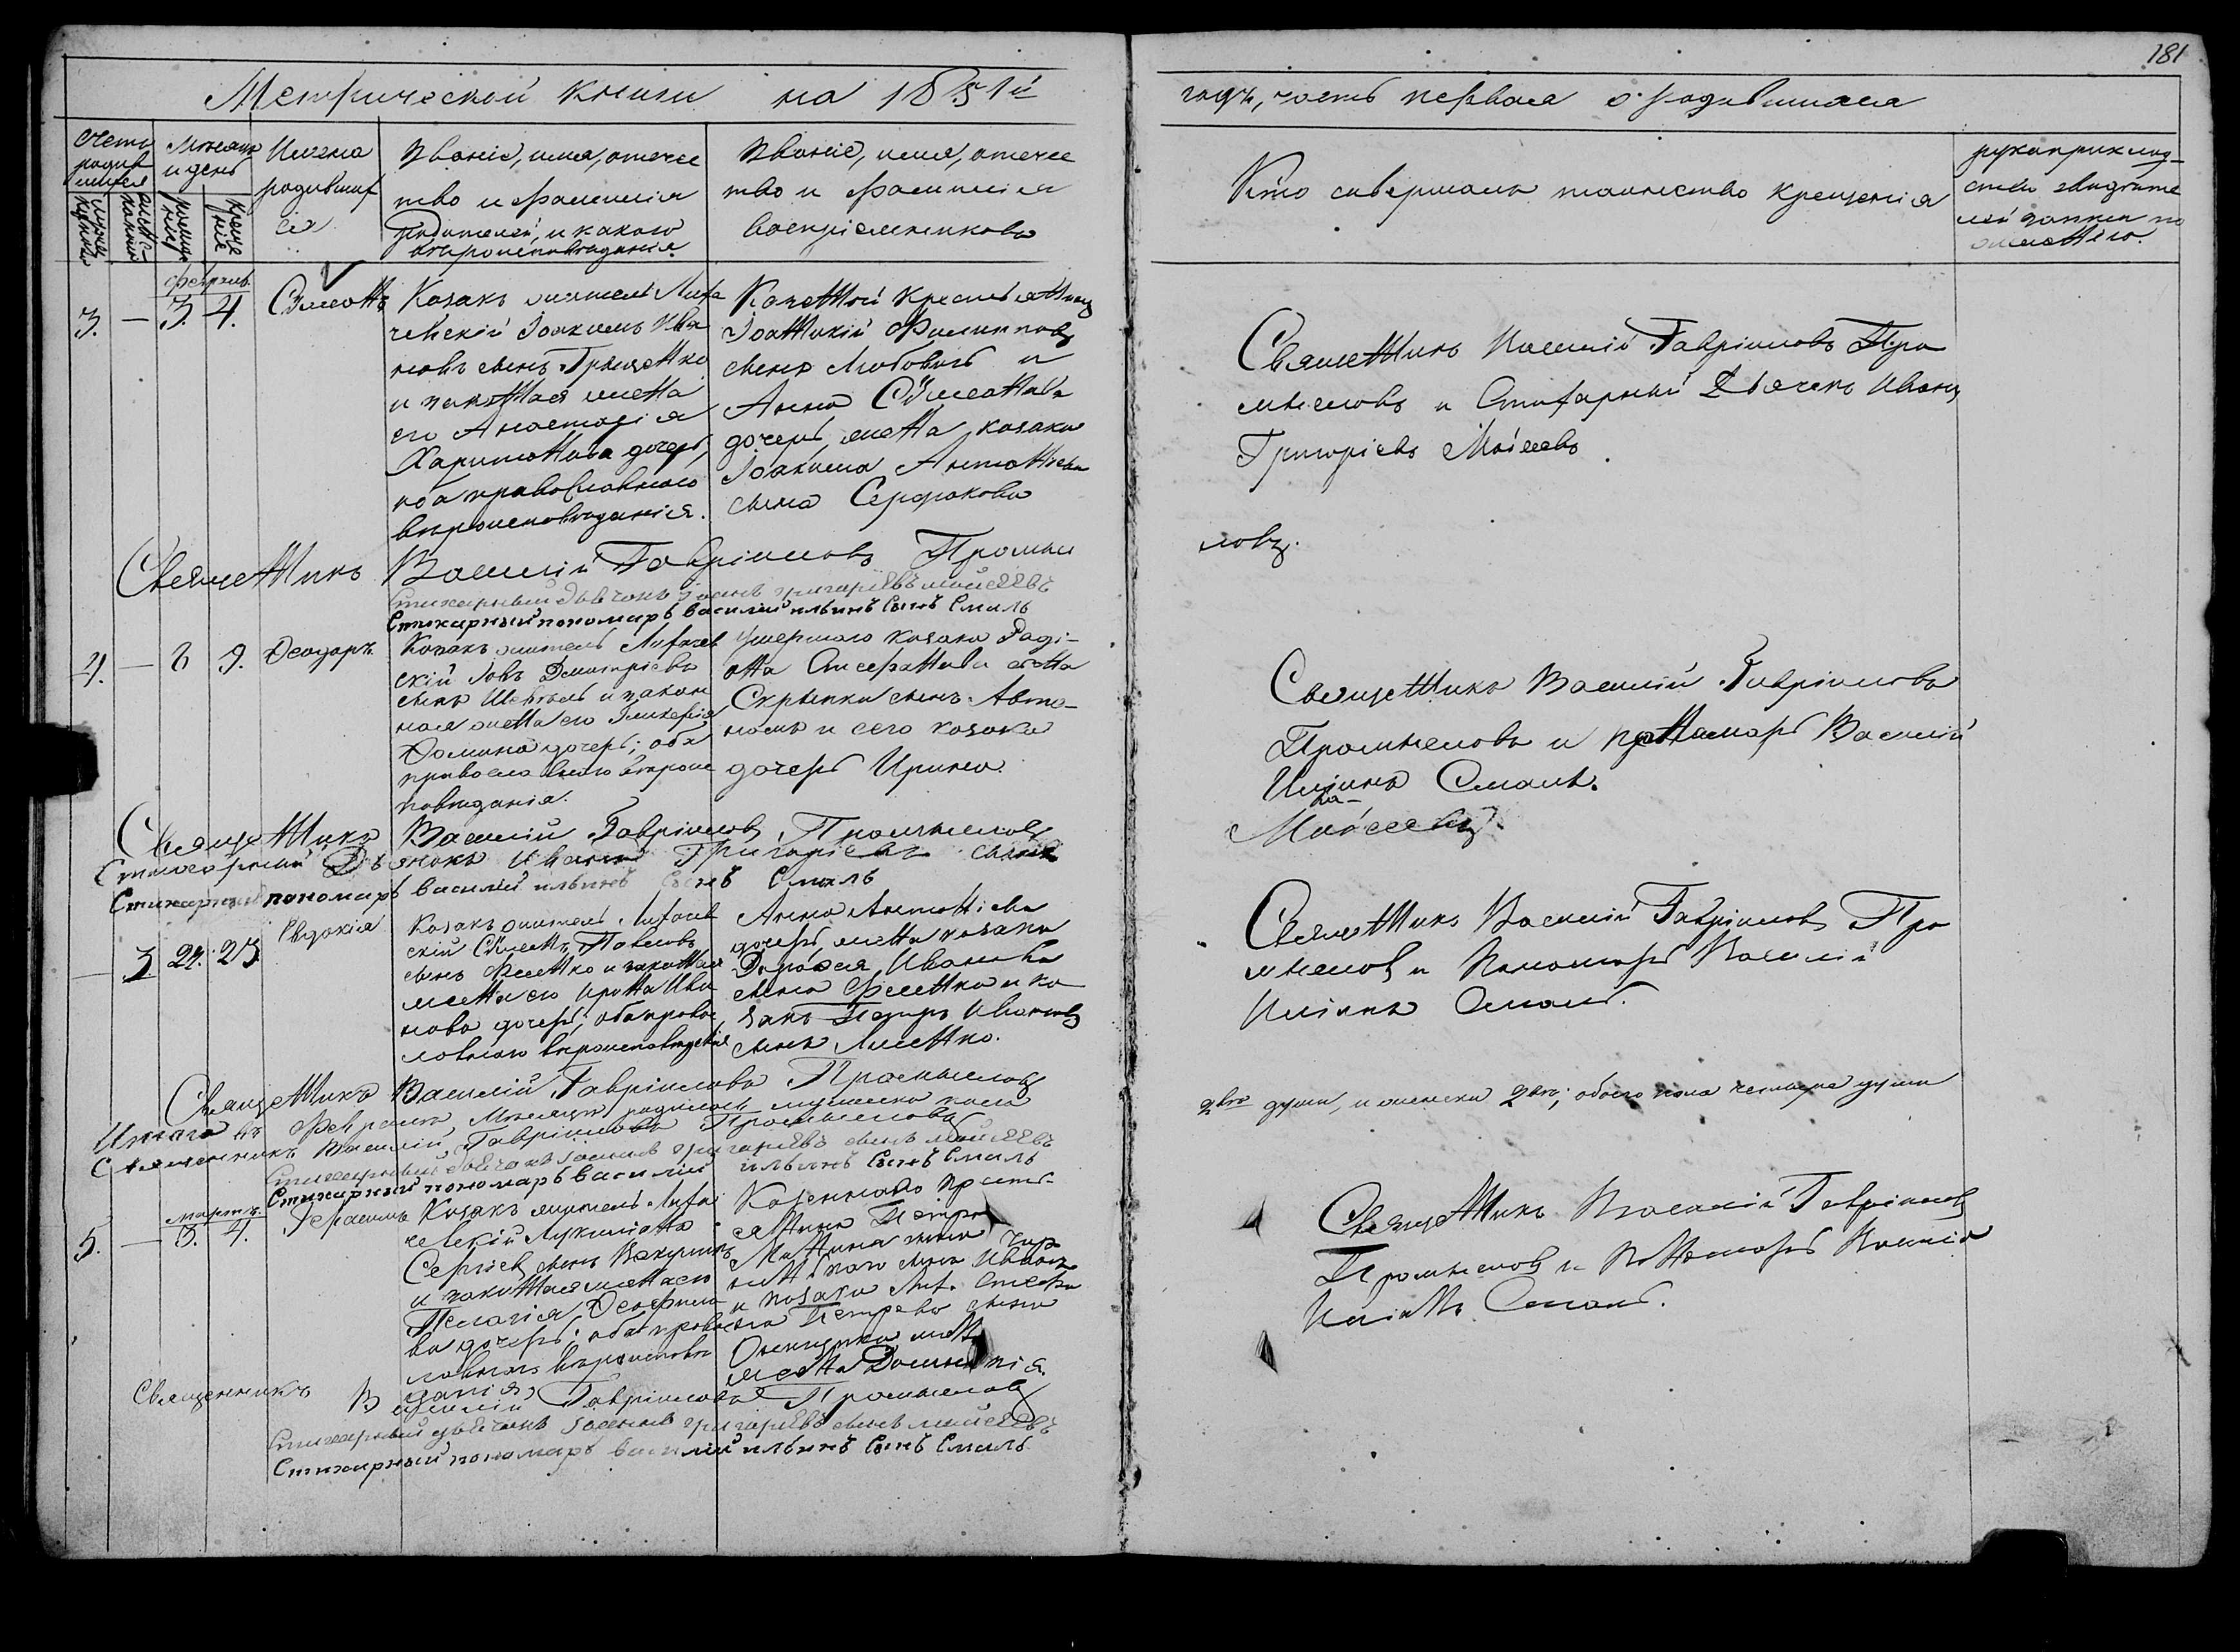 181
Метрической книги на 1851й
годъ, часть первая о родившихся
Счетъ родив шихся
Мѣсяцъ и день
Имена родивших ся
Званіе, имя, отчес
тво и фамилія
Родителей, и какого
вѣроисповѣданія.
Званіе, имя, отчес
тво и фамилія
воспріемниковъ
Кто совершалъ таинство крещенія
рукоприклад-
ство свидѣте
лей записи по
желанію.
мужеска
женска
рожде нія
креще нія
февраль
3. — 3. 4.
Симеонъ
Козакъ житель Лиха
чевскій Іоакимъ Ива
новъ сынъ Грищенко
и законная жена
его Анастасія
Харитонова дочерь,
оба православнаго
вѣроисповѣданія.
Казенный крестьянинъ
Іоанникій Филиповъ
сынъ Любовичъ и
Анна Симеонова
дочерь, жена козака
Іоакима Антоніева
сына Сердюкова
Священникъ Василій Гавріиловъ Про
мысловъ и Стихарный Дьячекъ Иванъ
Григоріевъ Моисеевъ
Священникъ Василій Гавріиловъ Промыс
ловъ.
Стихарный дьячокъ Іоаннъ григоріевъ мойсеевъ
Стихарный пономаръ василий ильинъ Сынъ Смаль
4. — 8 9.
Феодоръ
Козакъ житель Лихачев
скій Іовъ Дмитріевъ
сынъ Шевель и закон
ная жена его Гликерія
Домина дочерь; оба
православнаго вѣроис
повѣданія.
умершаго козака Роді-
она сына
Скрыпки сынъ Авто-
номъ и сего козака
дочерь Ирина.
Священникъ Василій Гавріиловъ
Промысловъ и пономарь Василій
Иліинъ Смаль.
Священникъ Василій Гавріиловъ Промысловъ
Стихарный Дьячокъ Иванъ Григоріевъ сынъ
Мойсеевъ.
Стихарный пономаръ василий ильинъ Сынъ Смаль
— 3 24. 25
Евдокія
Козакъ житель Лихачев
скій Симеонъ Павловъ
сынъ Фесенко и законная
жена его Ирина Ива
нова дочерь, оба правос
лавнаго вѣроисповѣданія
Анна Антоніева
дочерь, жена козака
Дорофея Иванова
сына Фесенка и ко
закъ Петръ Ивановъ
сынъ Лисенко.
Священникъ Василій Гавріиловъ Про
мысловъ и Пономарь Василій
Иліинъ Смаль.
Священникъ Василій Гавріиловъ Промысловъ
Итого въ Февралѣ Мѣсяцѣ родилось мужеска пола
двѣ души, и женска двѣ; обоего пола четыре души
Священникъ Василій Гавріиловъ Промысловъ
Стихарный дьячокъ Іоаннъ григоріевъ сынъ мойсеевъ
Стихарный пономаръ василий ильинъ Сынъ Смаль
мартъ.
5. — 3. 4.
Герасимъ
Козакъ житель Лиха
чевскій Лукиліанъ
Сергіевъ сынъ Вакуленко
и законная жена его
Пелагія Феофило
ва дочерь; оба правос
лавнаго вѣроисповѣ
данія
Казеннаго кресть-
янина Петра
сына Иванъ
и козака Лих. Стефа
на Петрова сына
Онищенка
жена Домникія.
Священникъ Василій Гавріиловъ
Промысловъ и Пономарь Василій
Иліинъ Смаль.
Священникъ Василій Гавріиловъ Промысловъ
Стихарный дьячокъ Іоаннъ григоріевъ сынъ мойсеевъ
Стихарный пономаръ василий ильинъ Сынъ Смаль